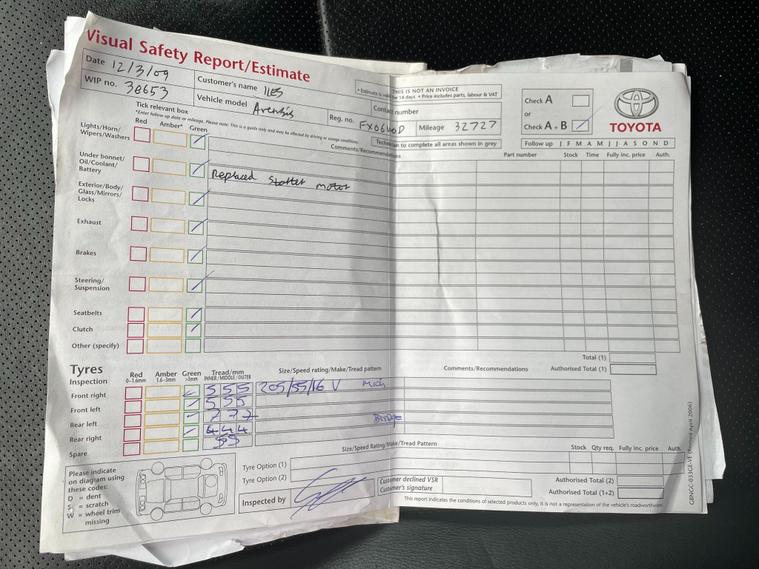 Visual Safety Report/Estimate
Date 12/3/09
Customer's name
WIP no. 38653
Vehicle model Avensis
Contact number
Reg. no.
Mileage 32727
THIS IS NOT AN INVOICE
• Price includes parts, labour & VAT
Check A
or
Check A + B
TOYOTA
Tick relevant box
Red Amber* Green
Comments/Recommendations
Technician to complete all areas shown in grey
Follow up J F M A M J J A S O N D
Part number Stock Time Fully inc. price Auth.
Lights/Horn/
Wipers/Washers
Under bonnet/
Oil/Coolant/
Battery
Replaced Starter motor
Exterior/Body/
Glass/Mirrors/
Locks
Exhaust
Brakes
Steering/
Suspension
Seatbelts
Clutch
Other (specify)
Total (1)
Authorised Total (1)
Tyres
Inspection
Red Amber Green Tread/mm
0-1.6mm 1.6-3mm >3mm INNER/MIDDLE/OUTER
Size/Speed rating/Make/Tread pattern
Comments/Recommendations
Front right 5 5 5 205/55/16 V Mich
Front left 5 5 5
Rear left 7 7 7
Rear right 4 4 4
Spare
Size/Speed Rating/Make/Tread Pattern
Stock Qty req. Fully inc. price Auth.
Please indicate
on diagram using
these codes:
D = dent
S = scratch
W = wheel trim
missing
Tyre Option (1)
Tyre Option (2)
Inspected by
Customer declined VSR
Customer's signature
Authorised Total (2)
Authorised Total (1+2)
This report indicates the conditions of selected products only, it is not a representation of the vehicle's roadworthiness